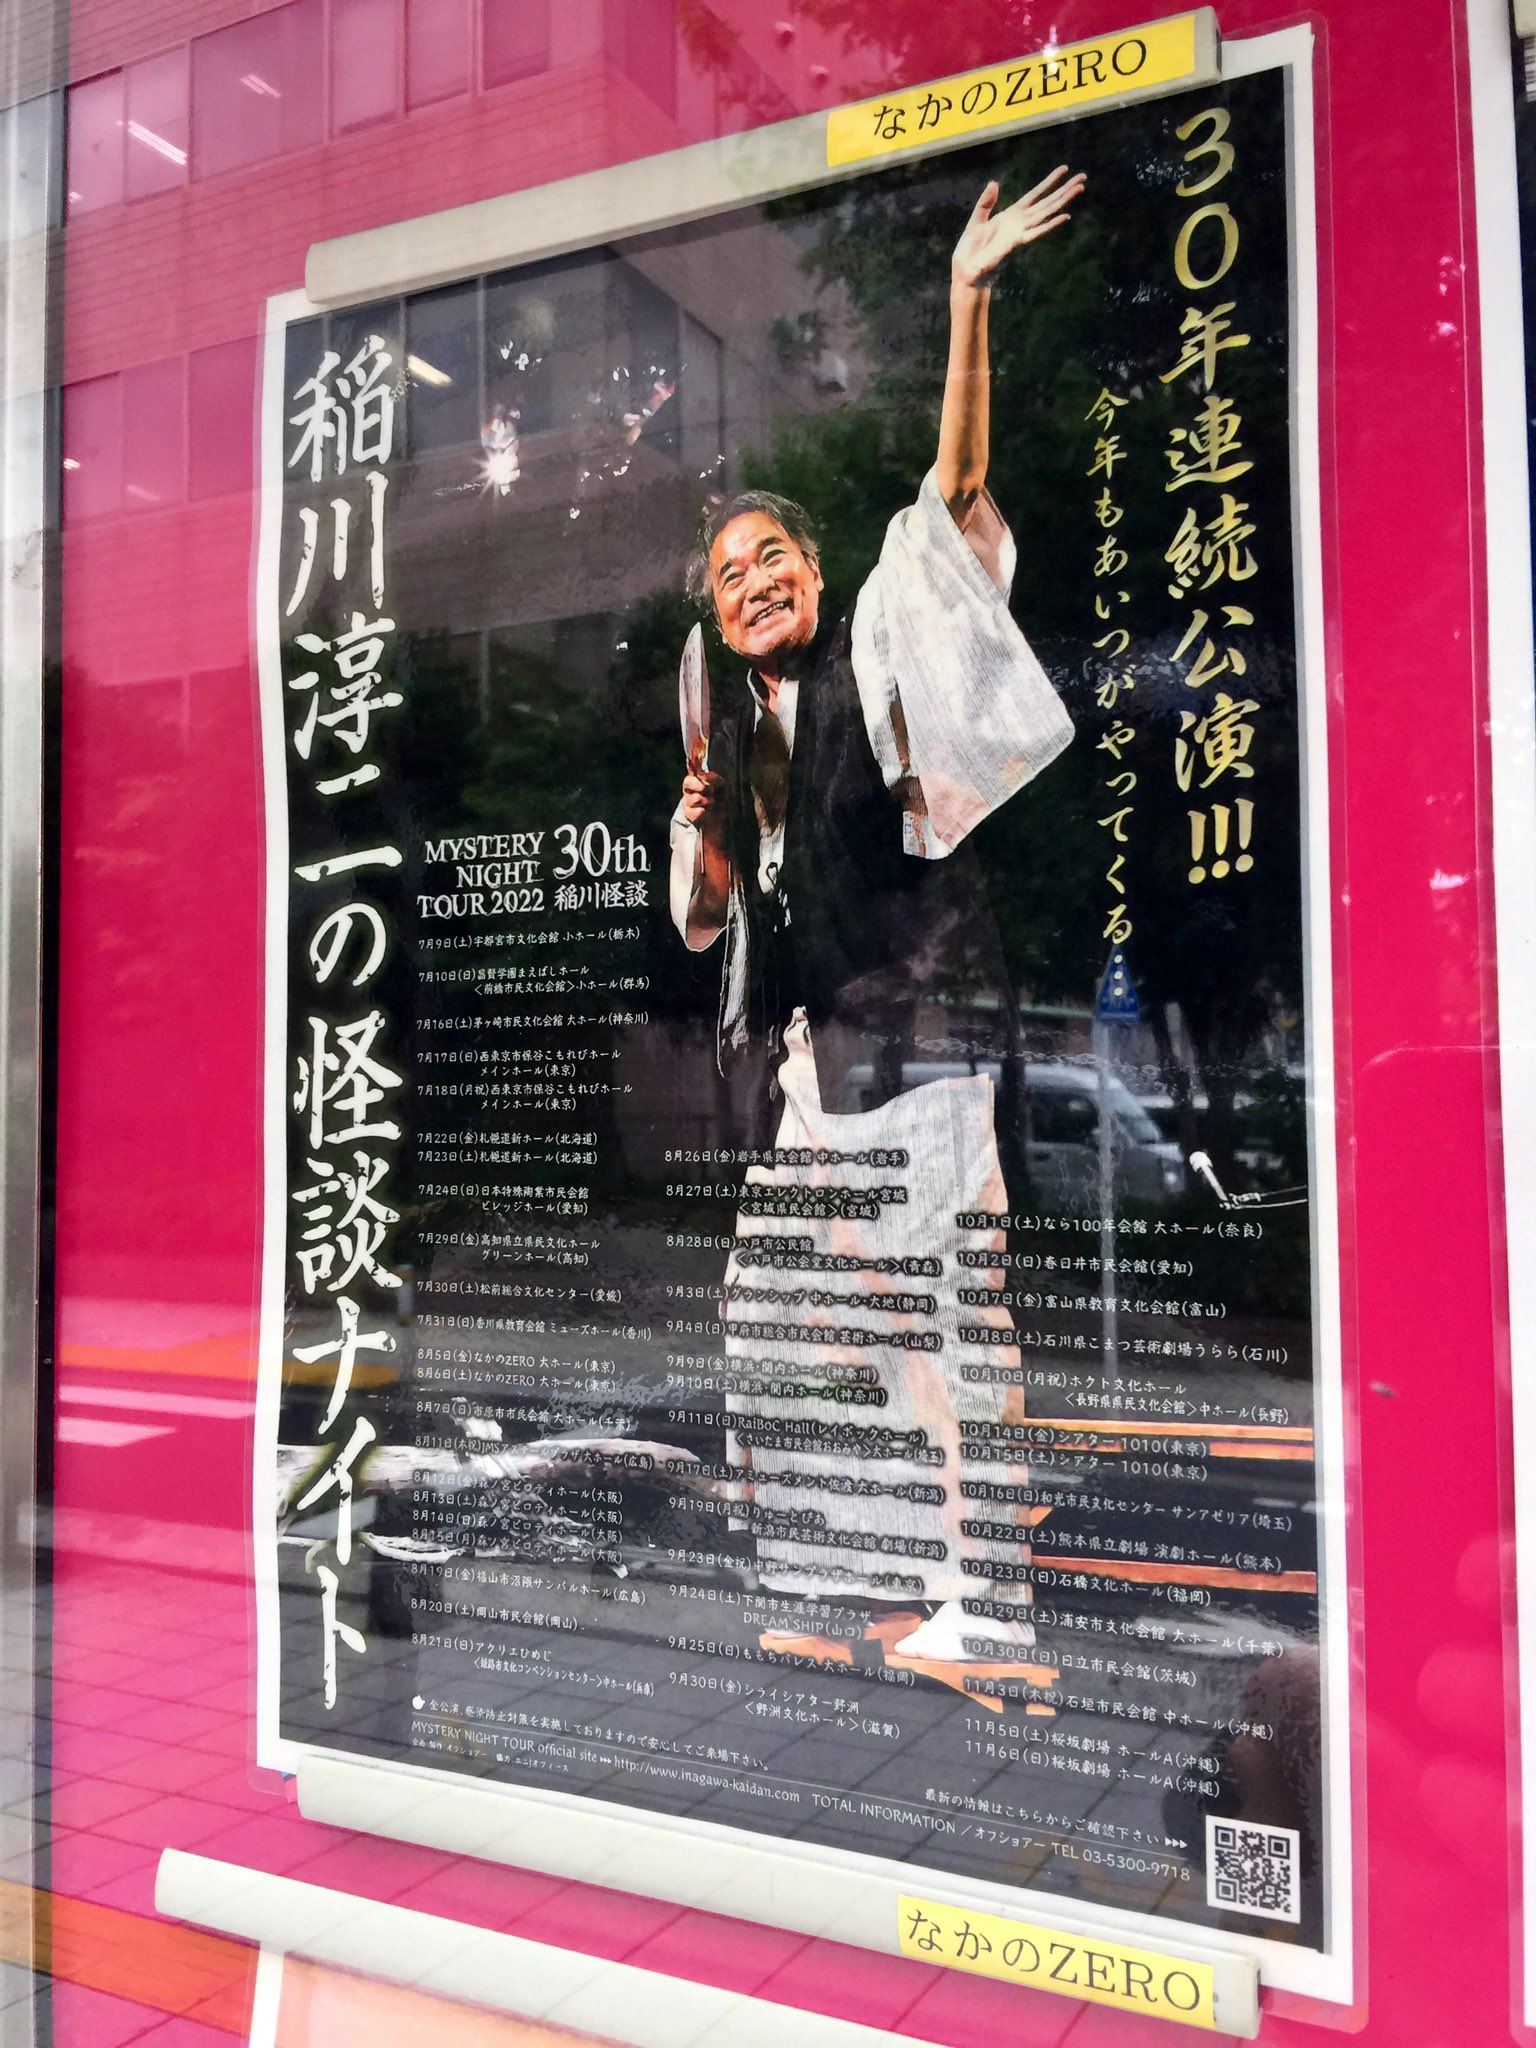 なかのZERO
30年連続公演!!!
今年もあいつがやってくる…
稲川淳二の怪談ナイト
MYSTERY
NIGHT
TOUR 2022
30th
稲川怪談
7月9日(土)宇都宮市文化会館 小ホール(栃木)
7月10日(日)昌賢学園まえばしホール
<前橋市民文化会館>小ホール(群馬)
7月16日(土)茅ヶ崎市民文化会館 大ホール(神奈川)
7月17日(日)西東京市保谷こもれびホール
メインホール(東京)
7月18日(月祝)西東京市保谷こもれびホール
メインホール(東京)
7月22日(金)札幌道新ホール(北海道)
7月23日(土)札幌道新ホール(北海道)
7月24日(日)日本特殊陶業市民会館
ビレッジホール(愛知)
7月29日(金)高知県立県民文化ホール
グリーンホール(高知)
7月30日(土)松前総合文化センター(愛媛)
7月31日(日)香川県教育会館 ミューズホール(香川)
8月5日(金)なかのZERO 大ホール(東京)
8月6日(土)なかのZERO 大ホール(東京)
8月7日(日)市原市市民会館 大ホール(千葉)
8月11日(木祝)JMSアステールプラザ大ホール(広島)
8月12日(金)森ノ宮ピロティホール(大阪)
8月13日(土)森ノ宮ピロティホール(大阪)
8月14日(日)森ノ宮ピロティホール(大阪)
8月15日(月)森ノ宮ピロティホール(大阪)
8月19日(金)福山市沼隈サンパルホール(広島)
8月20日(土)岡山市民会館(岡山)
8月21日(日)アクリエひめじ
<姫路市文化コンベンションセンター>中ホール(兵庫)
8月26日(金)岩手県民会館 中ホール(岩手)
8月27日(土)東京エレクトロンホール宮城
<宮城県民会館>(宮城)
8月28日(日)八戸市公民館
<八戸市公会堂文化ホール>(青森)
9月3日(土)グランシップ 中ホール・大地(静岡)
9月4日(日)甲府市総合市民会館 芸術ホール(山梨)
9月9日(金)横浜・関内ホール(神奈川)
9月10日(土)横浜・関内ホール(神奈川)
9月11日(日)RaiBoC Hall(レイボックホール)
<さいたま市民会館おおみや>大ホール(埼玉)
9月17日(土)アミューズメント佐渡 大ホール(新潟)
9月19日(月祝)りゅーとぴあ
新潟市民芸術文化会館 劇場(新潟)
9月23日(金祝)中野サンプラザホール(東京)
9月24日(土)下関市生涯学習プラザ
DREAM SHIP(山口)
9月25日(日)ももちパレス 大ホール(福岡)
9月30日(金)シライシアター野洲
<野洲文化ホール>(滋賀)
10月1日(土)なら100年会館 大ホール(奈良)
10月2日(日)春日井市民会館(愛知)
10月7日(金)富山県教育文化会館(富山)
10月8日(土)石川県こまつ芸術劇場うらら(石川)
10月10日(月祝)ホクト文化ホール
<長野県県民文化会館>中ホール(長野)
10月14日(金)シアター1010(東京)
10月15日(土)シアター1010(東京)
10月16日(日)和光市民文化センター サンアゼリア(埼玉)
10月22日(土)熊本県立劇場 演劇ホール(熊本)
10月23日(日)石橋文化ホール(福岡)
10月29日(土)浦安市文化会館 大ホール(千葉)
10月30日(日)日立市民会館(茨城)
11月3日(木祝)石垣市民会館 中ホール(沖縄)
11月5日(土)桜坂劇場 ホールA(沖縄)
11月6日(日)桜坂劇場 ホールA(沖縄)
全公演、感染防止対策を実施しておりますので安心してご来場下さい。
MYSTERY NIGHT TOUR official site ▸▸▸ http://www.inagawa-kaidan.com
TOTAL INFORMATION / オフショアー TEL 03-5300-9718
最新の情報はこちらからご確認下さい ▸▸▸
企画・制作 オフショアー 協力 ユニJオフィース
なかのZERO